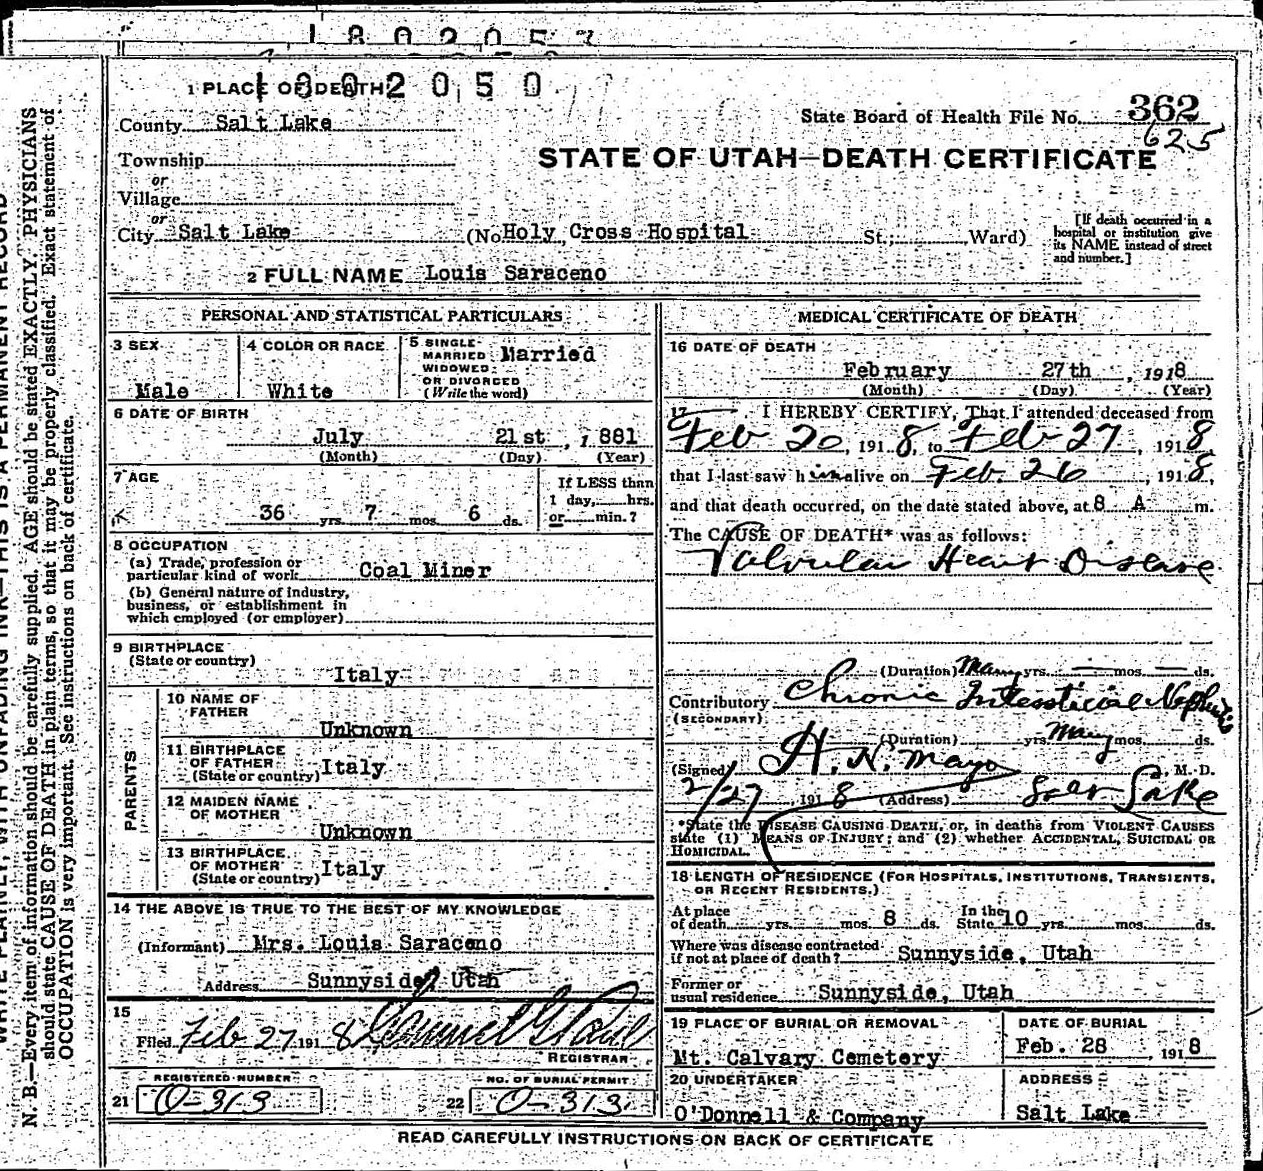 1802053
1 PLACE OF DEATH 1802050
County Salt Lake
State Board of Health File No. 362
625
Township
STATE OF UTAH—DEATH CERTIFICATE
or
Village
or
City Salt Lake (No. Holy Cross Hospital St.; Ward)
[If death occurred in a hospital or institution give its NAME instead of street and number.]
2 FULL NAME Louis Saraceno
PERSONAL AND STATISTICAL PARTICULARS
3 SEX
Male
4 COLOR OR RACE
White
5 SINGLE
MARRIED
WIDOWED
OR DIVORCED
(Write the word)
Married
6 DATE OF BIRTH
July 21st, 1881
(Month) (Day) (Year)
7 AGE
36 yrs. 7 mos. 6 ds.
If LESS than
1 day, hrs.
or min.?
8 OCCUPATION
(a) Trade, profession or
particular kind of work Coal Miner
(b) General nature of industry,
business, or establishment in
which employed (or employer)
9 BIRTHPLACE
(State or country)
Italy
PARENTS
10 NAME OF
FATHER
Unknown
11 BIRTHPLACE
OF FATHER
(State or country) Italy
12 MAIDEN NAME
OF MOTHER
Unknown
13 BIRTHPLACE
OF MOTHER
(State or country) Italy
14 THE ABOVE IS TRUE TO THE BEST OF MY KNOWLEDGE
(Informant) Mrs. Louis Saraceno
Address Sunnyside, Utah
15
Filed Feb 27 1918 Samuel G Paul
REGISTRAR
REGISTERED NUMBER
21 O-313
NO. OF BURIAL PERMIT
22 O-313
MEDICAL CERTIFICATE OF DEATH
16 DATE OF DEATH
February 27th, 1918
(Month) (Day) (Year)
17 I HEREBY CERTIFY, That I attended deceased from
Feb 20, 1918, to Feb 27, 1918
that I last saw him alive on Feb. 26, 1918,
and that death occurred, on the date stated above, at 8 A m.
The CAUSE OF DEATH* was as follows:
Valvular Heart Disease
(Duration) Many yrs. — mos. — ds.
Contributory Chronic Interstitial Nephritis
(SECONDARY)
(Duration) yrs. Many mos. ds.
(Signed) H. N. Mayo, M. D.
2/27 1918 (Address) Salt Lake
*State the DISEASE CAUSING DEATH, or, in deaths from VIOLENT CAUSES
state (1) MEANS OF INJURY; and (2) whether ACCIDENTAL, SUICIDAL OR
HOMICIDAL.
18 LENGTH OF RESIDENCE (FOR HOSPITALS, INSTITUTIONS, TRANSIENTS,
OR RECENT RESIDENTS.)
At place
of death yrs. mos. 8 ds. In the
State 10 yrs. mos. ds.
Where was disease contracted
if not at place of death? Sunnyside, Utah
Former or
usual residence Sunnyside, Utah
19 PLACE OF BURIAL OR REMOVAL
Mt. Calvary Cemetery
DATE OF BURIAL
Feb. 28, 1918
20 UNDERTAKER
O'Donnell & Company
ADDRESS
Salt Lake
READ CAREFULLY INSTRUCTIONS ON BACK OF CERTIFICATE
WRITE PLAINLY, WITH UNFADING INK—THIS IS A PERMANENT RECORD
N. B.—Every item of information should be carefully supplied. AGE should be stated EXACTLY. PHYSICIANS
should state CAUSE OF DEATH in plain terms, so that it may be properly classified. Exact statement of
OCCUPATION is very important. See instructions on back of certificate.